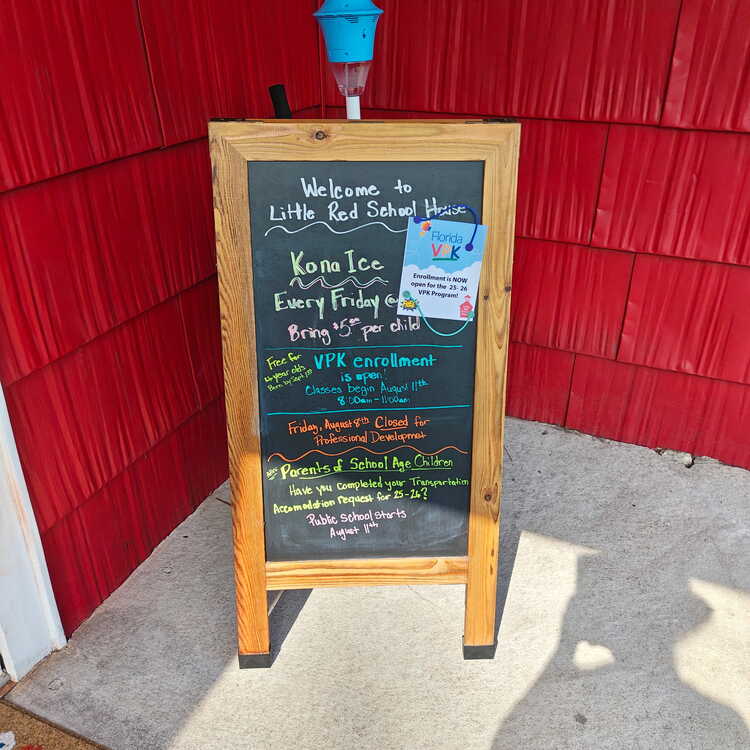 Welcome to
Little Red School House
Florida
VPK
Enrollment is NOW
open for the 25-26
VPK Program!
Kona Ice
Every Friday @
Bring $5.00 per child
Free for
year olds
Born by Sept 1st
VPK enrollment
is open!
Classes begin August 11th
8:00am - 11:00am
Friday, August 8th Closed for
Professional Development
Parents of School Age Children
Have you completed your Transportation
Accomodation request for 25-26?
Public School starts
August 11th